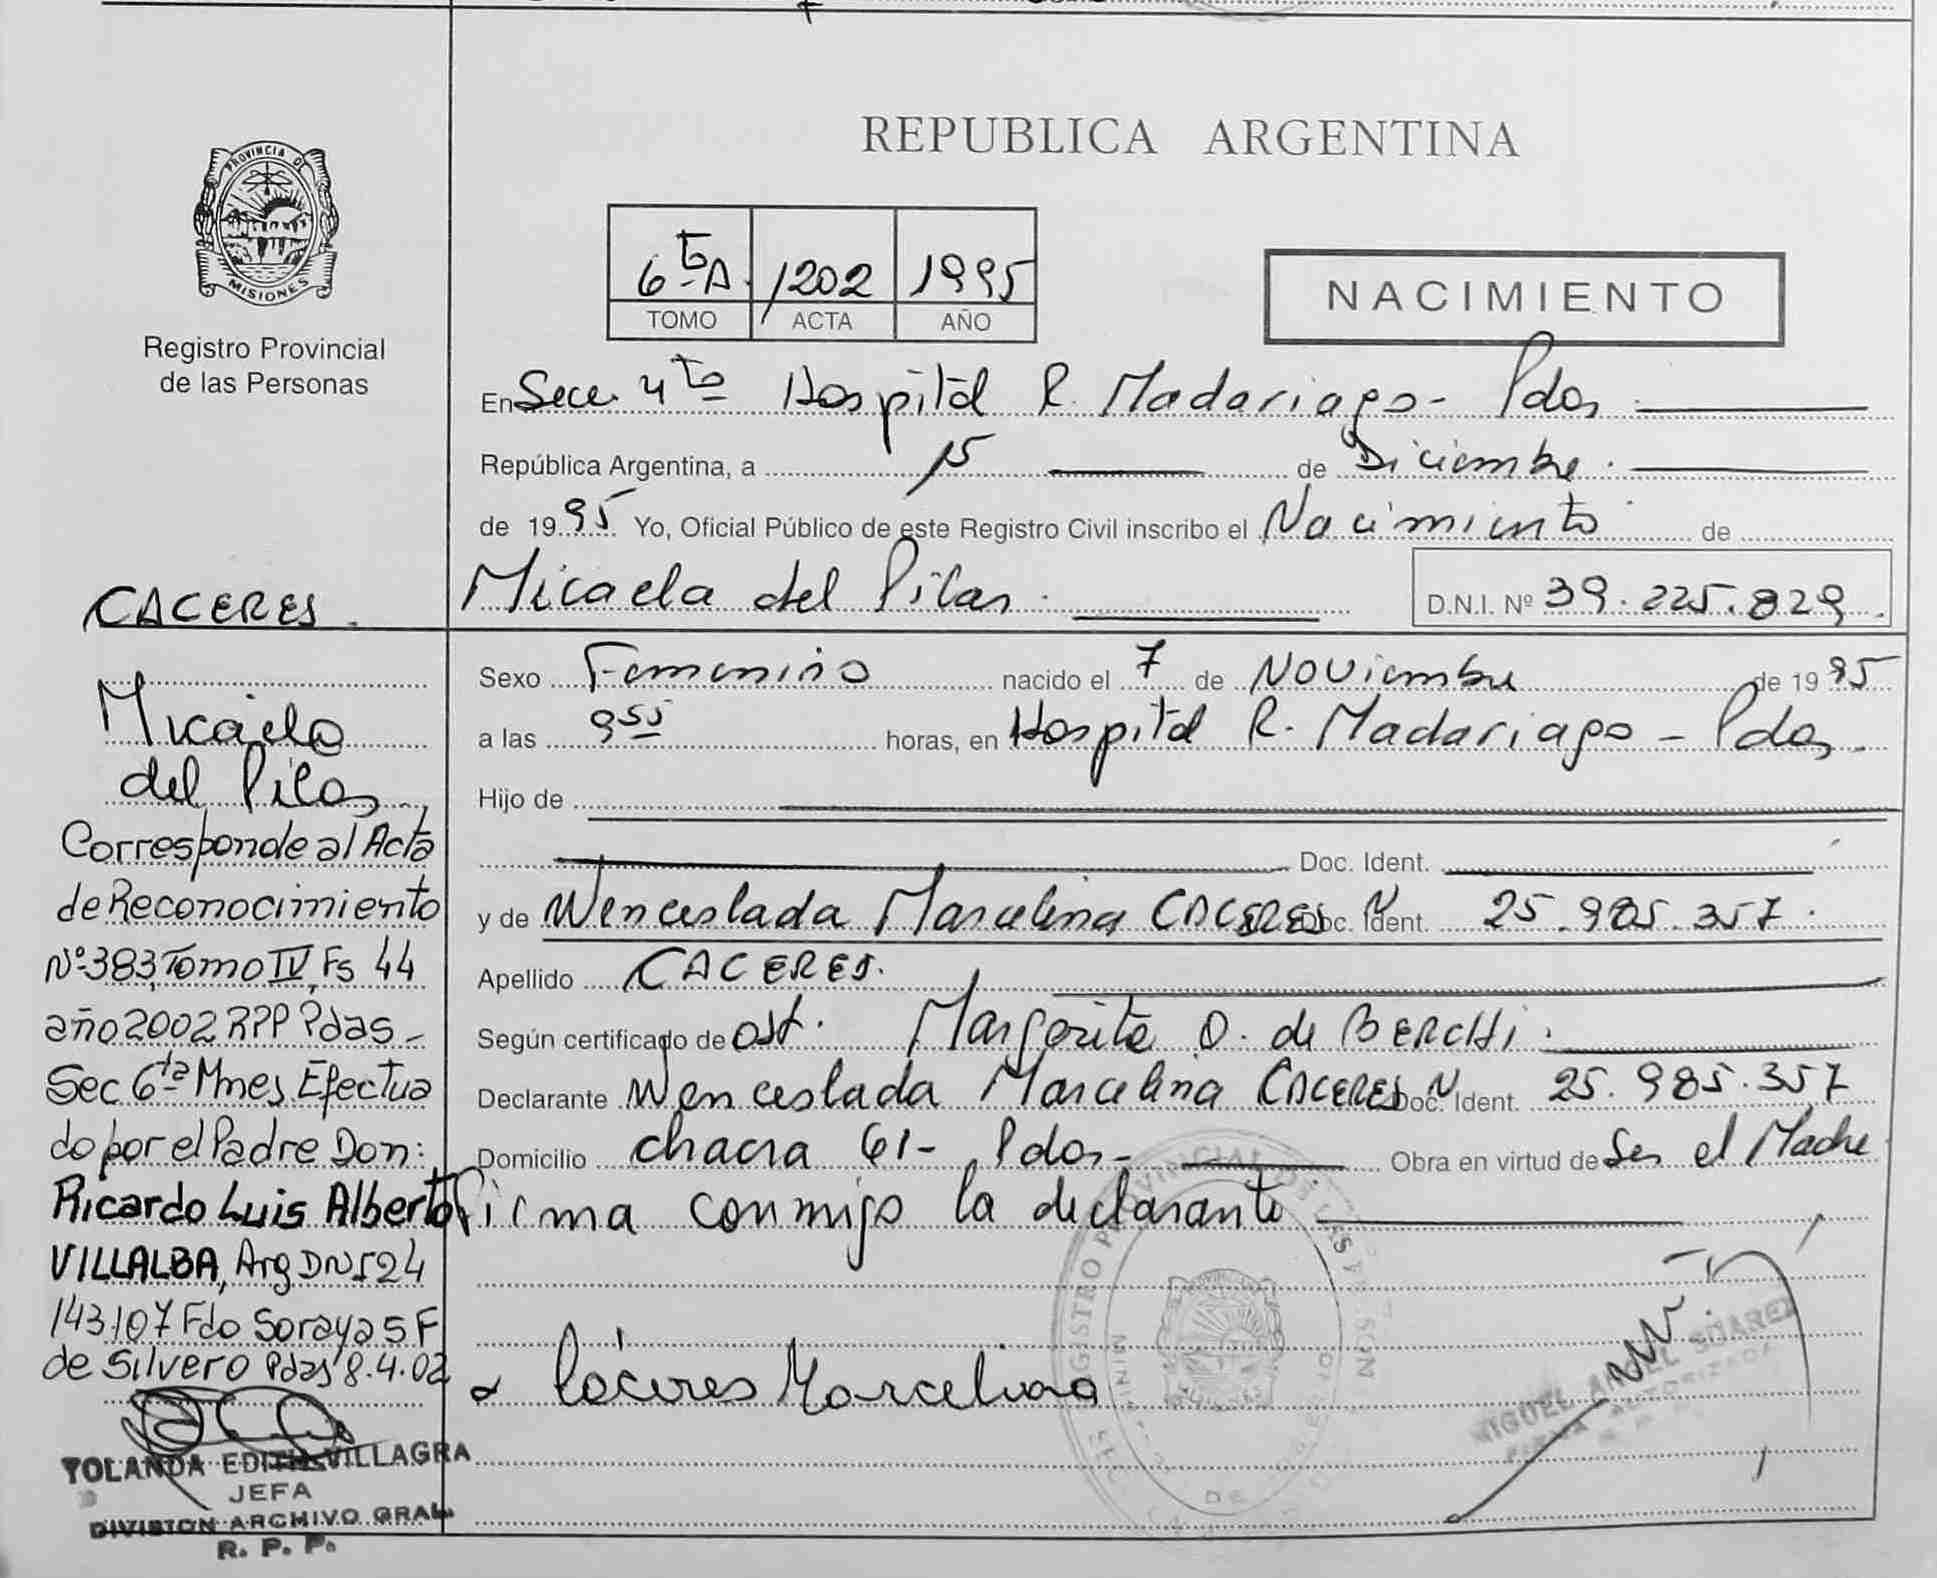 REPUBLICA ARGENTINA
PROVINCIA DE
MISIONES
Registro Provincial
de las Personas
6ta A. 1202 1995
TOMO ACTA AÑO
NACIMIENTO
En Secc. 4to Hospital R. Madariaga - Pdas.
República Argentina, a 15 de Diciembre.
de 1995 Yo, Oficial Público de este Registro Civil inscribo el Nacimiento de
Micaela del Pilar. D.N.I. Nº 39.225.829.
CACERES.
Micaela
del Pilar
Corresponde al Acta
de Reconocimiento
Nº 383, Tomo IV, Fs 44
año 2002 RPP Pdas -
Sec 6ta Mnes Efectua
do por el Padre Don:
Ricardo Luis Alberto
VILLALBA, Arg DNI 24
143.107 Fdo Soraya S F
de Silvero Pdas 8.4.02
YOLANDA EDITH VILLAGRA
JEFA
DIVISION ARCHIVO GRAL.
R. P. P.
Sexo Femenino nacido el 7 de Noviembre de 1995
a las 9 55 horas, en Hospital R. Madariaga - Pdas.
Hijo de
Doc. Ident.
y de Wenceslada Marcelina CACERES Doc. Ident. 25.985.357.
Apellido CACERES.
Según certificado de obst. Margarita O. de BERCHI.
Declarante Wenceslada Marcelina CACERES Doc. Ident. 25.985.357
Domicilio chacra 61- Pdas- Obra en virtud de Ser el Madre
Firma conmigo la declarante
Cáceres Marcelina
REGISTRO PROVINCIAL DE LAS PERSONAS
MIGUEL ANGEL SUAREZ
FIRMA AUTORIZADA